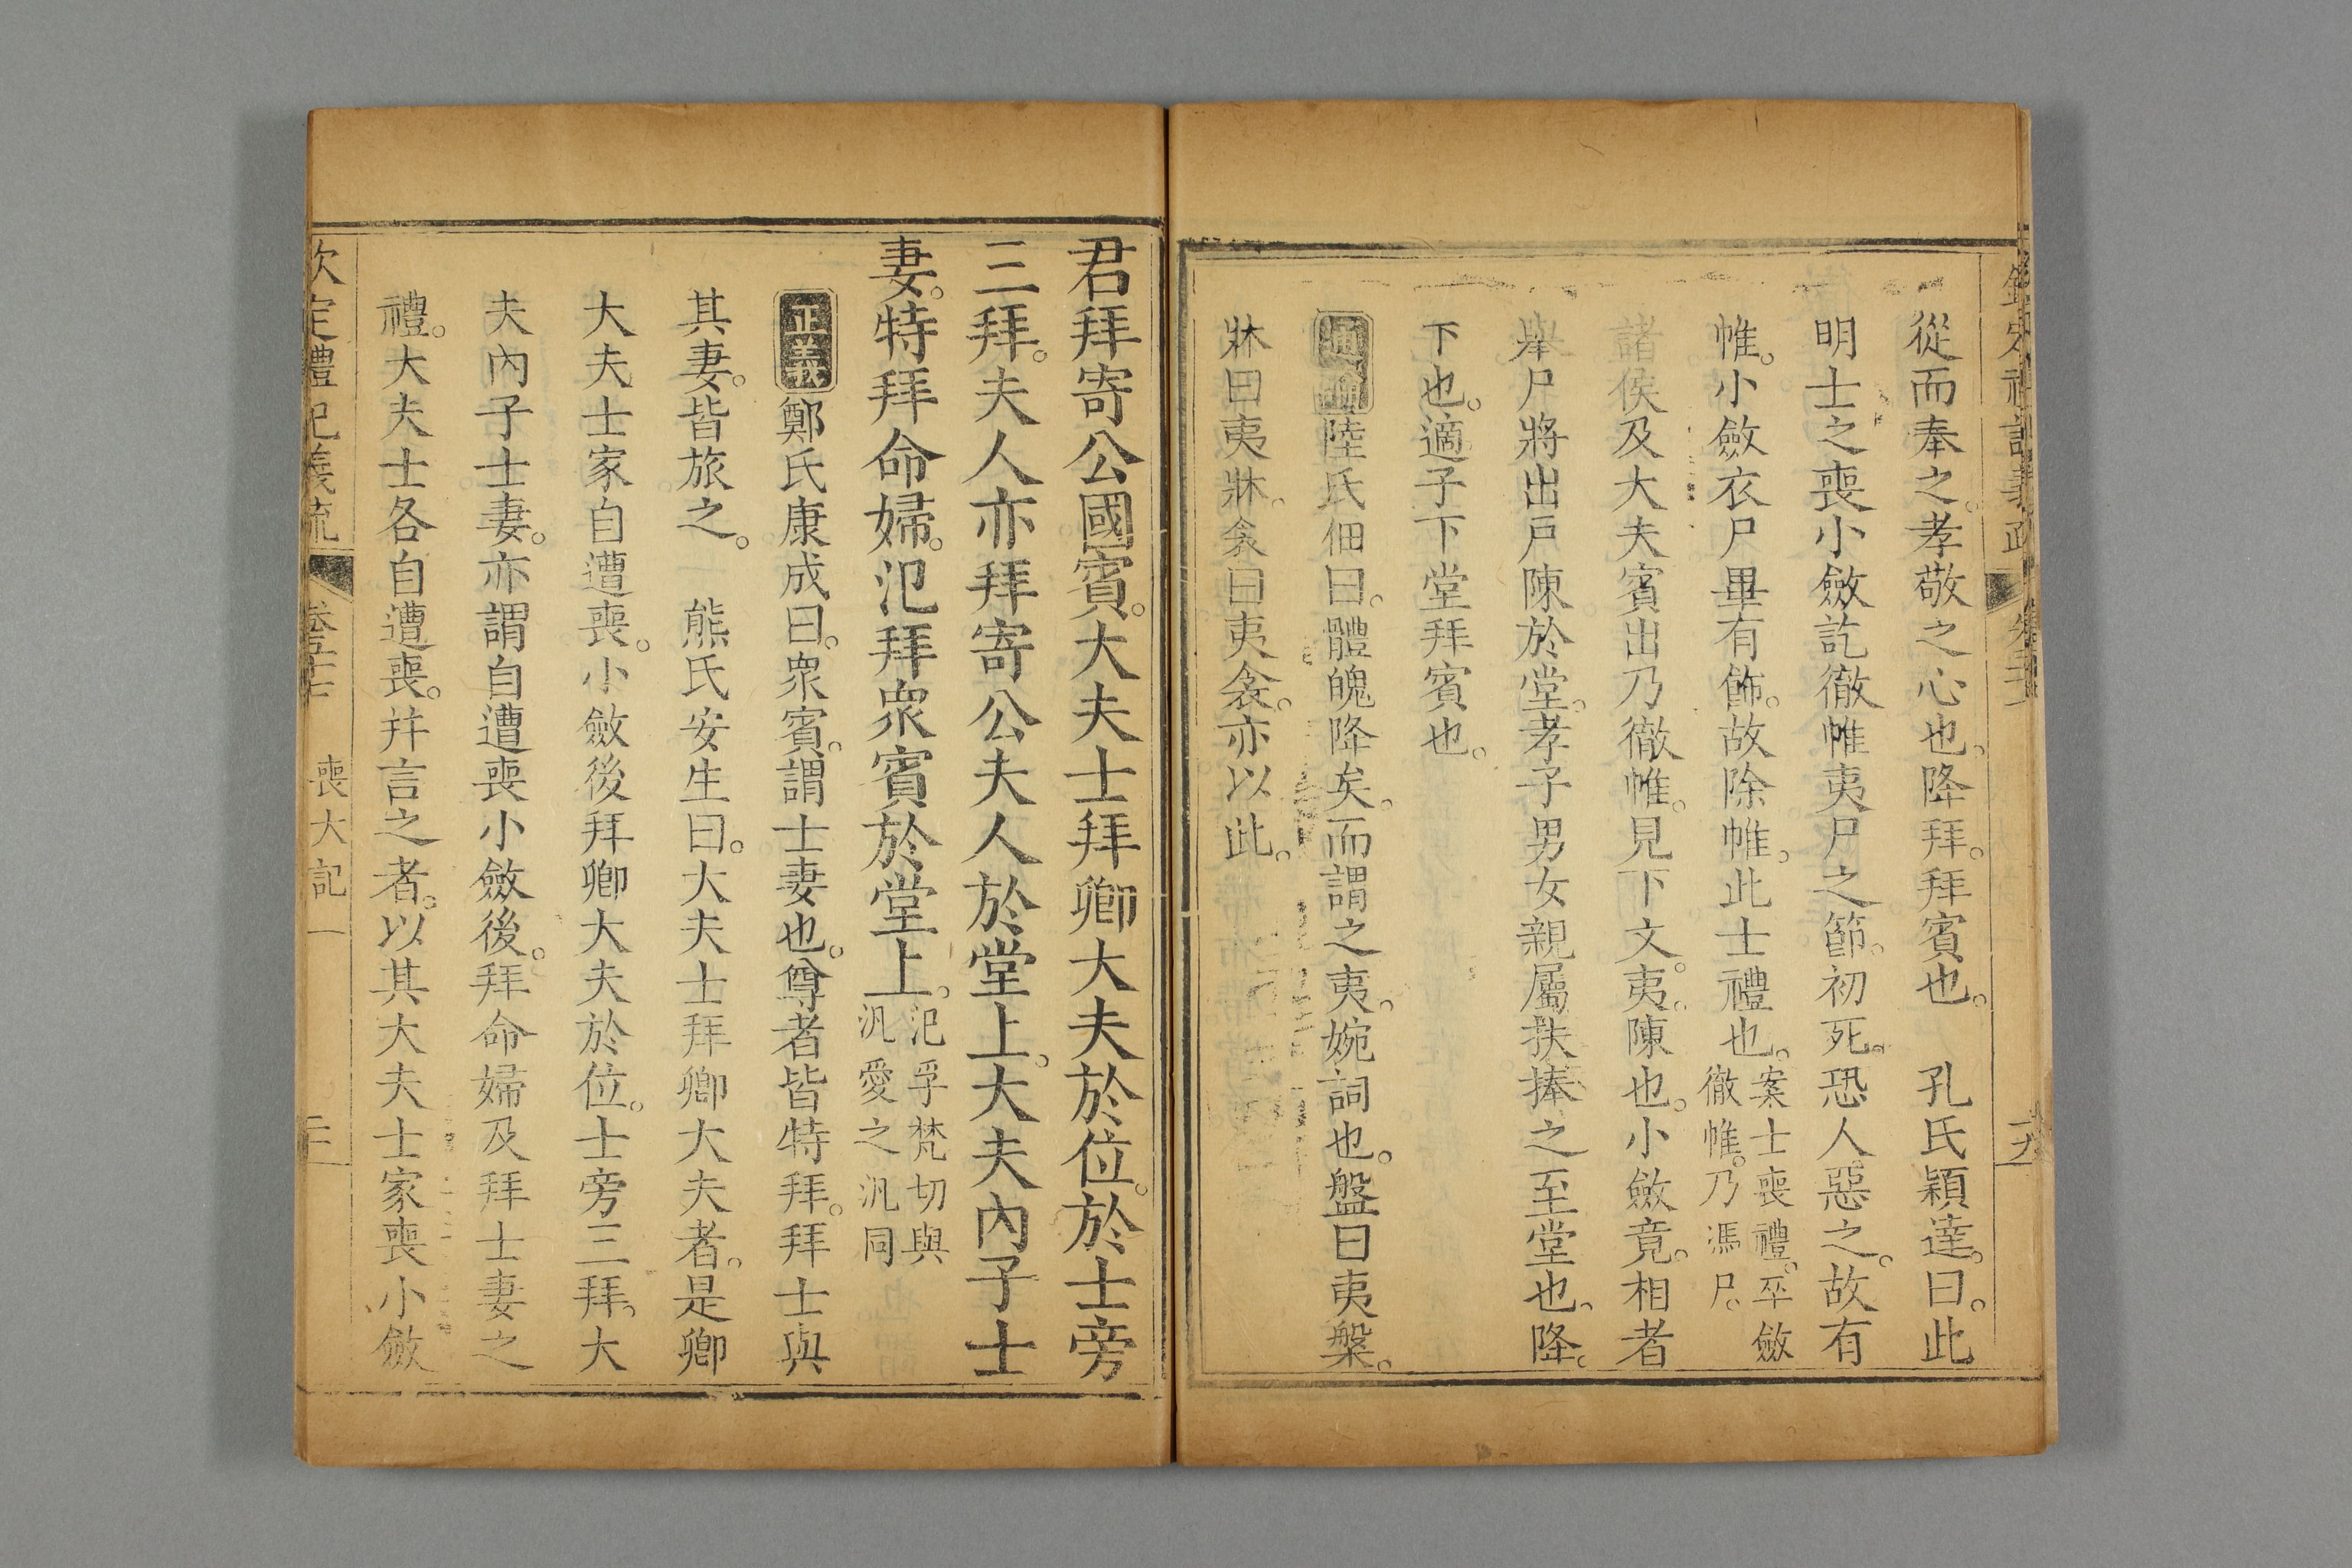 從而奉之。孝敬之心也。降拜。拜賓也。　孔氏穎達。曰。此
明士之喪小斂訖徹帷夷尸之節。初死。恐人惡之。故有
帷。小斂衣尸畢有飾。故除帷。此士禮也。案士喪禮。卒斂徹帷。乃馮尸。
諸侯及大夫賓出乃徹帷。見下文。夷。陳也。小斂竟。相者
舉尸將出戶陳於堂。孝子男女親屬扶捧之至堂也。降。
下也。適子下堂拜賓也。
通論陸氏佃曰。體魄降矣。而謂之夷。婉詞也。盤曰夷槃。
牀曰夷牀。衾曰夷衾。亦以此。
君拜寄公國賓。大夫士拜卿大夫於位。於士旁
三拜。夫人亦拜寄公夫人於堂上。大夫內子士
妻。特拜命婦。氾拜衆賓於堂上。氾孚梵切與汎愛之汎同
正義鄭氏康成曰。衆賓。謂士妻也。尊者皆特拜。拜士與
其妻。皆旅之。　熊氏安生曰。大夫士拜卿大夫者。是卿
大夫士家自遭喪。小斂後拜卿大夫於位。士旁三拜。大
夫內子士妻。亦謂自遭喪小斂後。拜命婦及拜士妻之
禮。大夫士各自遭喪。幷言之者。以其大夫士家喪小斂
欽定禮記義疏　喪大記一